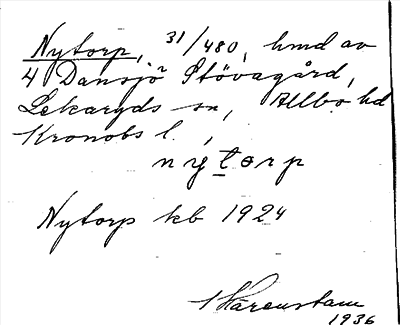 Nytorp, 31/480, hmd av
4 Dansjö Stövagård,
Lekaryds sn, Allbo hd
Kronobs l.,
n y t o r p
Nytorp kb 1924
Harenstam
1936